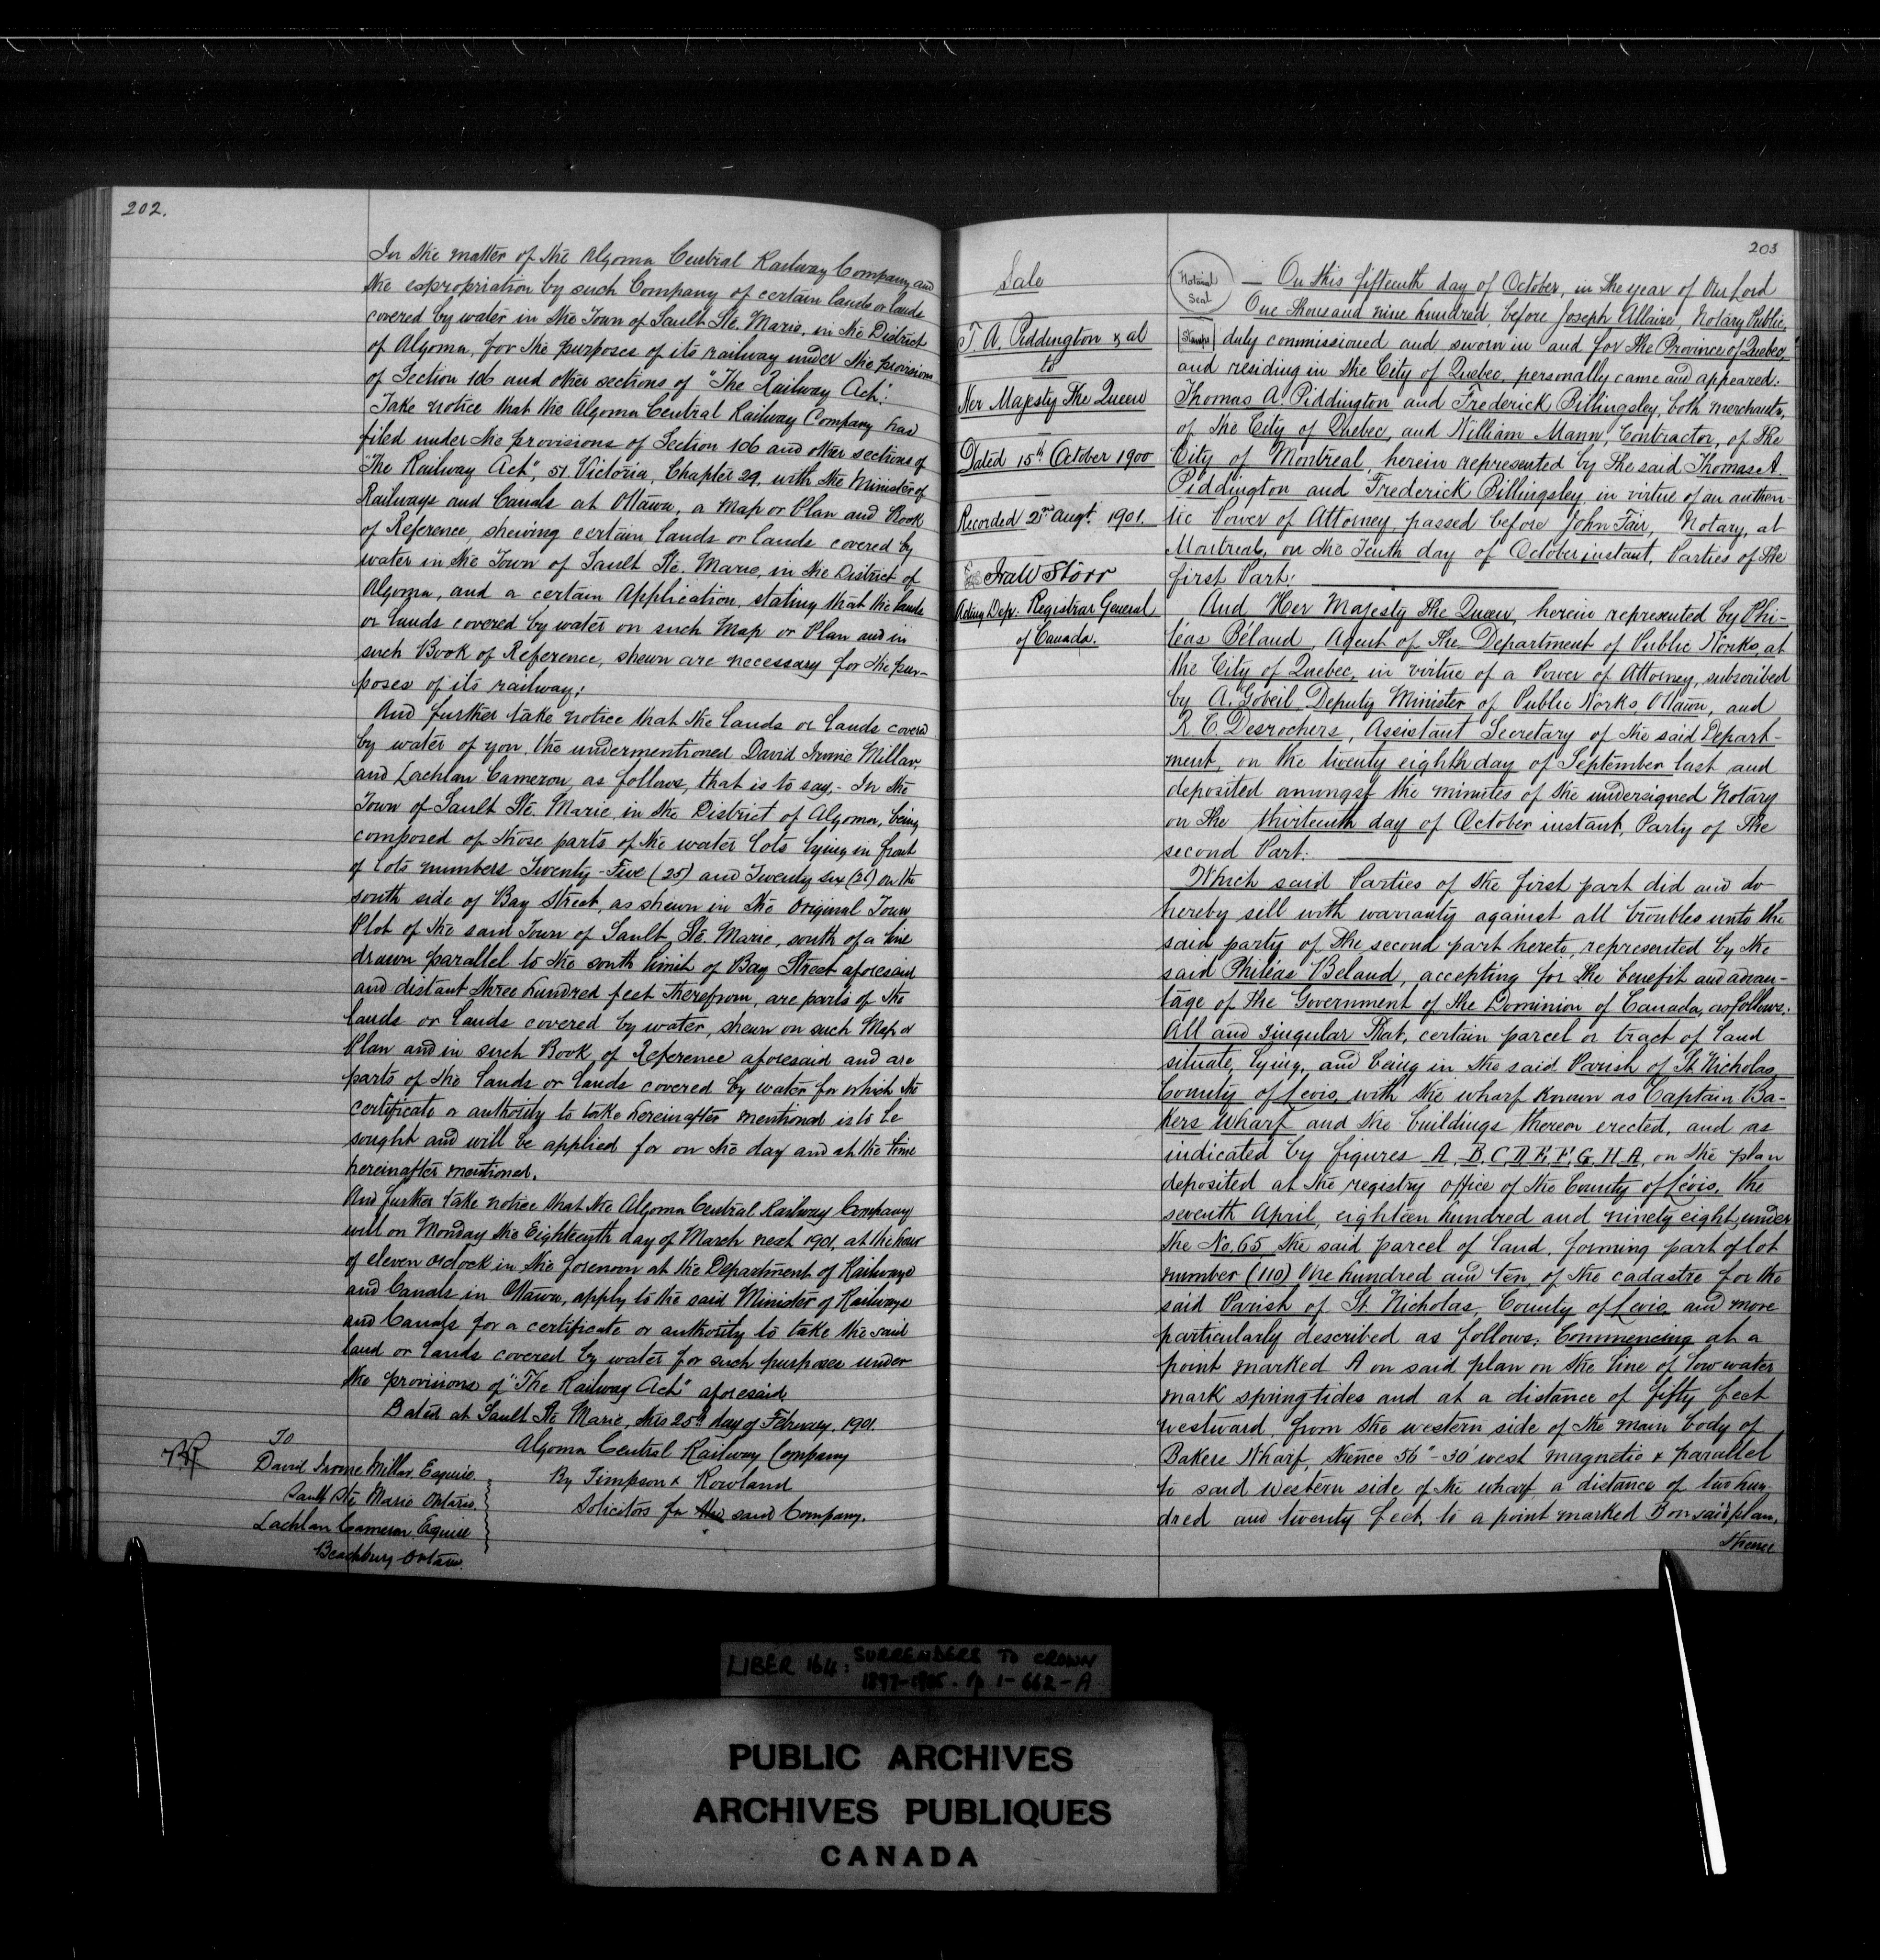 202.
In the matter of the Algoma Central Railway Company and
the expropriation by such Company of certain lands or lands
covered by water in the Town of Sault Ste. Marie, in the District
of Algoma, for the purposes of its railway under the provisions
of Section 106 and other sections of "The Railway Act":
Take notice that the Algoma Central Railway Company has
filed under the provisions of Section 106 and other sections of
"The Railway Act", 51 Victoria, Chapter 29, with the Minister of
Railways and Canals at Ottawa, a Map or Plan and Book
of Reference, shewing certain lands or lands covered by
water in the Town of Sault Ste. Marie, in the District of
Algoma, and a certain Application, stating that the lands
or lands covered by water on such Map or Plan and in
such Book of Reference, shewn are necessary for the pur-
poses of its railway:
And further take notice that the lands or lands covered
by water of you, the undermentioned David Irvine Millar
and Lachlan Cameron, as follows, that is to say,- In the
Town of Sault Ste. Marie in the District of Algoma, being
composed of those parts of the water lots lying in front
of lots numbers Twenty-Five (25) and Twenty six (26) on the
south side of Bay Street, as shewn in the original Town
Plot of the said Town of Sault Ste. Marie, south of a line
drawn parallel to the south limit of Bay Street aforesaid
and distant three hundred feet therefrom, are parts of the
lands or lands covered by water, shewn on such Map or
Plan and in such Book of Reference aforesaid and are
parts of the lands or lands covered by water for which the
certificate or authority to take hereinafter mentioned is to be
sought and will be applied for on the day and at the time
hereinafter mentioned.
And further take notice that the Algoma Central Railway Company
will on Monday the Eighteenth day of March next 1901, at the hour
of eleven o'clock in the forenoon at the Department of Railways
and Canals in Ottawa, apply to the said Minister of Railways
and Canals for a certificate or authority to take the said
land or lands covered by water for such purposes under
the provisions of "The Railway Act" aforesaid
Dated at Sault Ste Marie, this 25th day of February, 1901.
Algoma Central Railway Company
By Simpson & Rowland
Solicitors for the said Company.
To
David Irvine Millar, Esquire.
Sault Ste Marie Ontario.
Lachlan Cameron, Esquire
Beachburg Ontario.
203
Sale
T. A. Piddington & al
to
Her Majesty The Queen
Dated 15th October 1900
Recorded 2nd Augt. 1901.
Ira W Storr
Acting Dep. Registrar General
of Canada.
Notarial
Seal
Stamps
On this fifteenth day of October, in the year of Our Lord
One thousand nine hundred, before Joseph Allaire, Notary Public,
duly commissioned and sworn in and for the Province of Quebec
and residing in the City of Quebec, personally came and appeared:
Thomas A. Piddington and Frederick Billingsley, both merchants,
of the City of Quebec, and William Mann, Contractor, of the
City of Montreal, herein represented by the said Thomas A.
Piddington and Frederick Billingsley in virtue of an authen-
tic Power of Attorney, passed before John Fair, Notary, at
Montreal, on the Tenth day of October instant, Parties of the
first Part:
And Her Majesty the Queen, herein represented by Phi-
léas Béland, Agent of the Department of Public Works, at
the City of Quebec, in virtue of a Power of Attorney, subscribed
by A. Gobeil Deputy Minister of Public Works Ottawa, and
R. C. Desrochers, Assistant Secretary of the said Depart-
ment, on the twenty eighth day of September last and
deposited amongst the minutes of the undersigned Notary
on the thirteenth day of October instant, Party of the
second Part:
Which said Parties of the first part did and do
hereby sell with warranty against all troubles unto the
said party of the second part hereto, represented by the
said Philéas Beland, accepting for the benefit and advan-
tage of the Government of the Dominion of Canada, as follows:
All and singular That, certain parcel or tract of land
situate, lying, and being in the said Parish of St Nicholas,
County of Levis, with the wharf known as Captain Ba-
kers Wharf and the buildings thereon erected, and as
indicated by figures A, B, C, D, E, F, G, H, A, on the plan
deposited at the registry office of the County of Lévis, the
seventh April, eighteen hundred and ninety eight, under
the No. 65 the said parcel of land, forming part of lot
number (110) One hundred and ten, of the cadastre for the
said Parish of St. Nicholas, County of Levis and more
particularly described as follows: Commencing at a
point marked A on said plan on the line of low water
mark spring tides and at a distance of fifty feet
westward from the western side of the main body of
Bakers Wharf, thence 56°-30' west magnetic & parallel
to said western side of the wharf a distance of two hun-
dred and twenty feet, to a point marked B on said plan,
thence
LIBER 164: SURRENDERS TO CROWN
1897-1905. Pp 1-662-A
PUBLIC ARCHIVES
ARCHIVES PUBLIQUES
CANADA